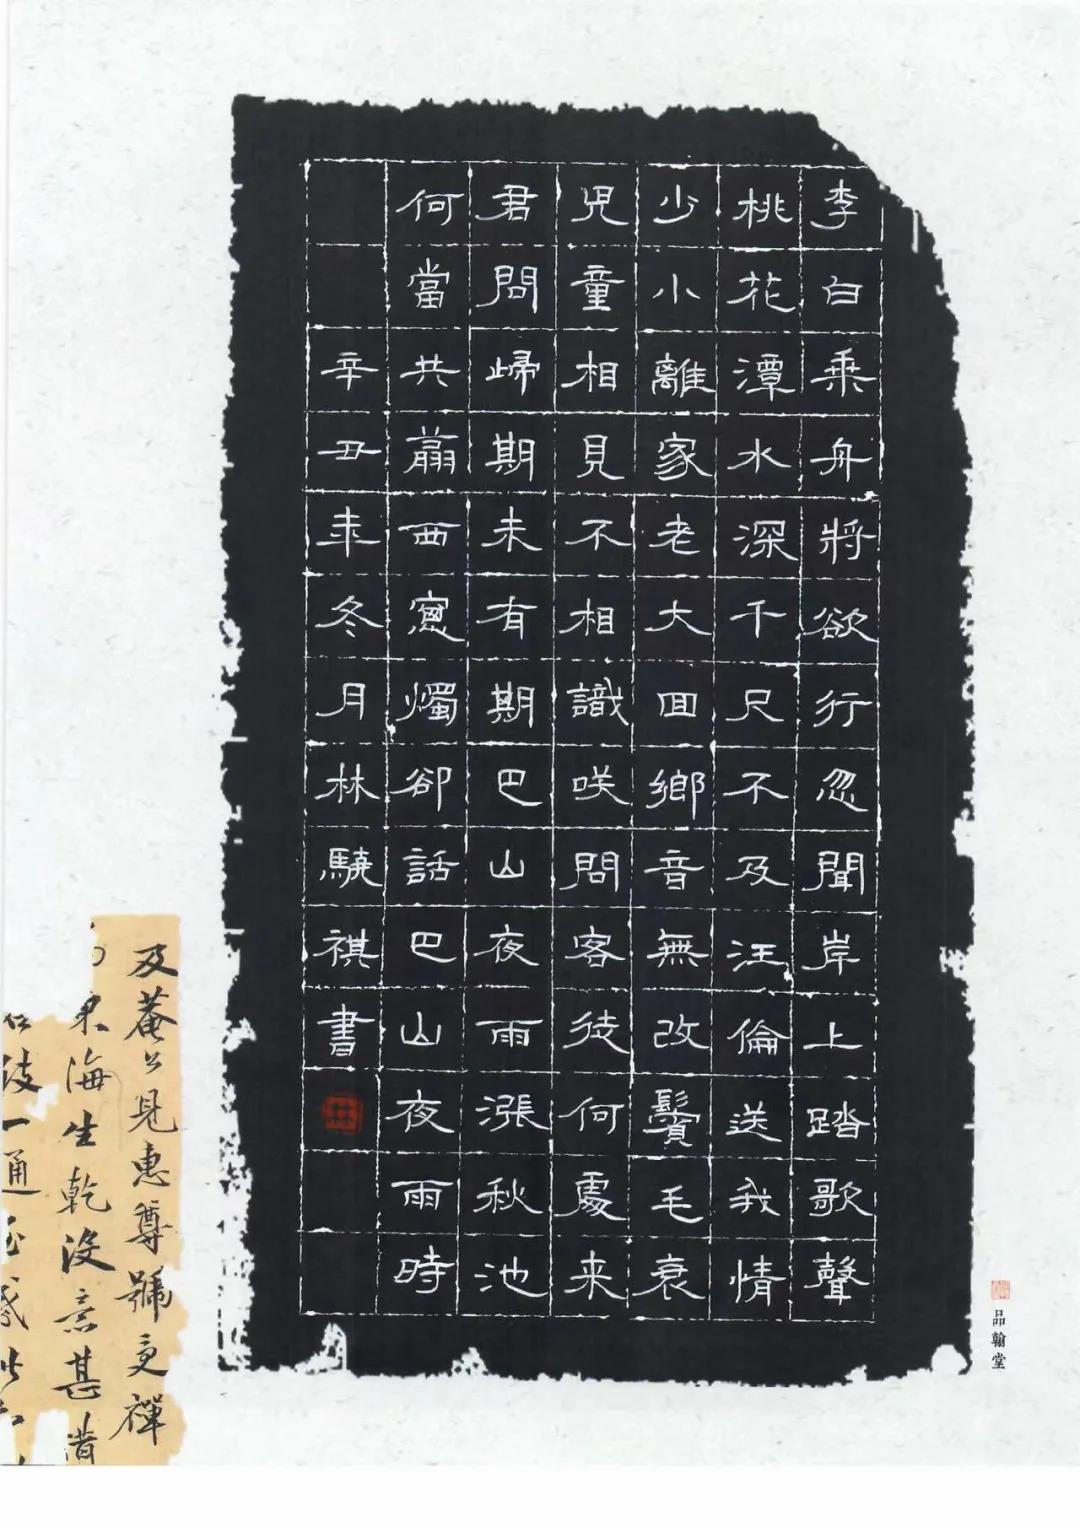 李白乘舟將欲行忽聞岸上踏歌聲
桃花潭水深千尺不及汪倫送我情
少小離家老大回鄉音無改鬢毛衰
兒童相見不相識咲問客從何處来
君問歸期未有期巴山夜雨漲秋池
何當共翦西窻燭卻話巴山夜雨時
辛丑年冬月林驍祺書
品翰堂
及菴公見惠尊號
海生乾沒意甚
一通